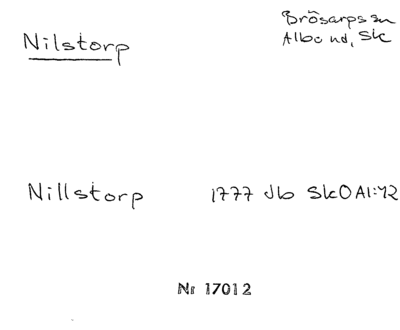 Nilstorp
Brösarps sn
Albo hd, Sk
Nillstorp 1777 Jb SkO Al:42
Nr 17012